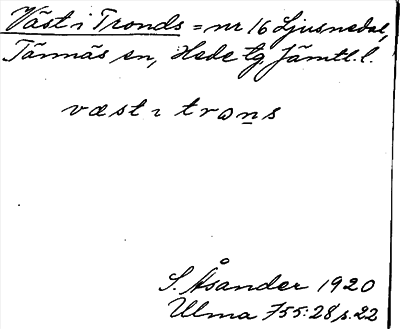 Väst i Tronds = nr 16 Ljusnedal,
Tännäs sn, Hede tg Jämtl. l.
væst ı trωn̲s
S. Åsander 1920
Ulma 755:28 s. 22